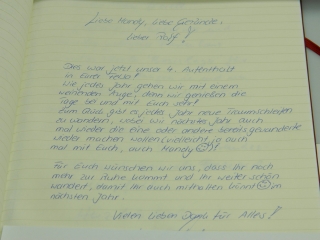 Liebe Mandy, liebe
lieber Ralf!
Das war jetzt unser 4. Aufenthalt
in Eurer
Wie jedes Jahr gehen wir mit einem
weinenden Auge, denn wir genießen die
Tage bei und mit Euch sehr!
Zum Glück gibt es jedes Jahr neue
zu wandern, wobei wir nächstes Jahr auch
mal wieder die eine oder andere bereits gewanderte
wieder machen wollen (vielleicht ja auch
mal mit Euch, auch Mandy ☺)!
Für Euch wünschen wir uns, dass Ihr noch
mehr zur Ruhe kommt und Ihr weiter schön
wandert, damit Ihr auch mithalten könnt ☺ im
nächsten Jahr.
Vielen lieben Dank für Alles!